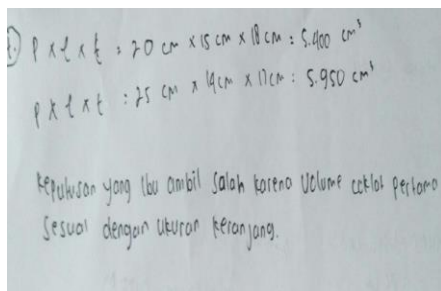 P x l x t : 20 cm x 15 cm x 18 cm : 5.400 cm³
P x l x t : 25 cm x 14 cm x 17 cm : 5.950 cm³
Keputusan yang Ibu ambil Salah karena Volume coklat pertama
Sesuai dengan Ukuran keranjang.